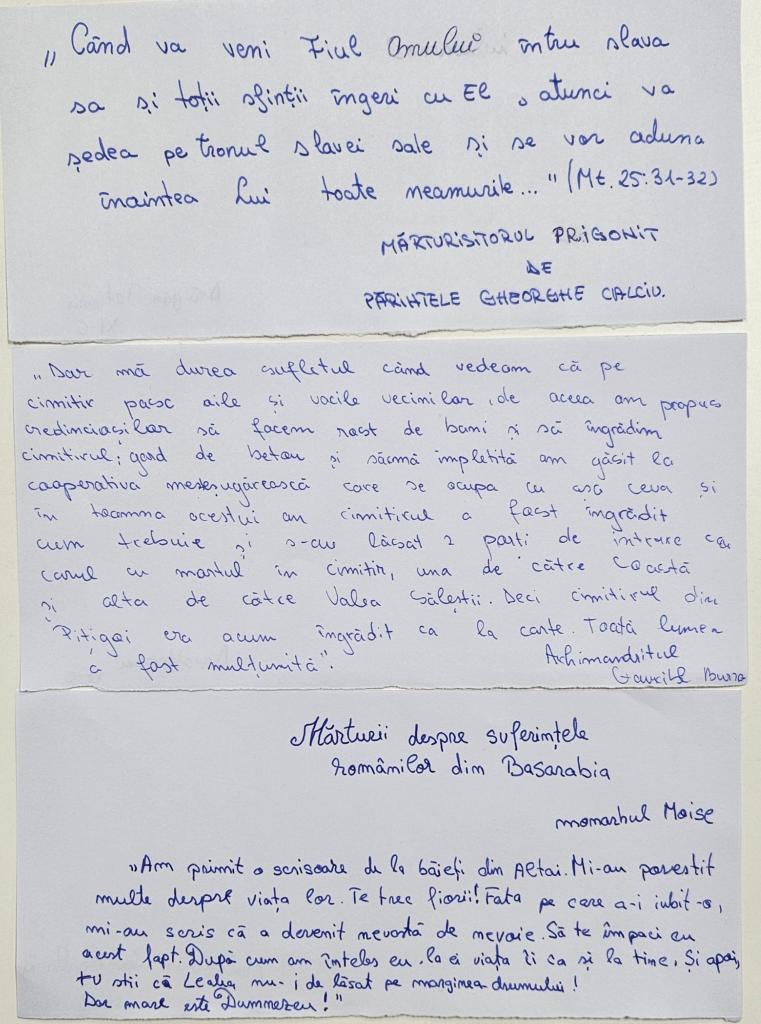 „Când va veni Fiul Omului întru slava
sa și toții sfinții îngeri cu El, atunci va
ședea pe tronul slavei sale și se vor aduna
înaintea Lui toate neamurile..." (Mt. 25:31-32)
MĂRTURISITORUL PRIGONIT
DE
PĂRINTELE GHEORGHE CALCIU.
„Dar mă durea sufletul când vedeam că pe
cimitir pasc oile și vacile vecinilor, de aceea am propus
credincioșilor să facem rost de bani și să îngrădim
cimitirul; gard de beton și sârmă împletită am găsit la
cooperativa meșteșugărească care se ocupa cu așa ceva și
în toamna acestui an cimitirul a fost îngrădit
cum trebuie și s-au lăsat 2 porți de intrare cu
carul cu mortul în cimitir, una de către Coastă
și alta de către Valea Săleștii. Deci cimitirul din
Pițigoi era acum îngrădit ca la carte. Toată lumea
a fost mulțumită".
Arhimandritul
Gavriil Burzo
Mărturii despre suferințele
românilor din Basarabia
monarhul Moise
„Am primit o scrisoare de la băieți din Altai. Mi-au povestit
multe despre viața lor. Te trec fiorii! Fata pe care a-i iubit-o,
mi-au scris că a devenit nevastă de nevoie. Să te împaci cu
acest fapt. După cum am înțeles eu, la ei viața îi ca și la tine. Și apoi,
tu știi că Lealea nu-i de lăsat pe marginea drumului!
Dar mare este Dumnezeu!"